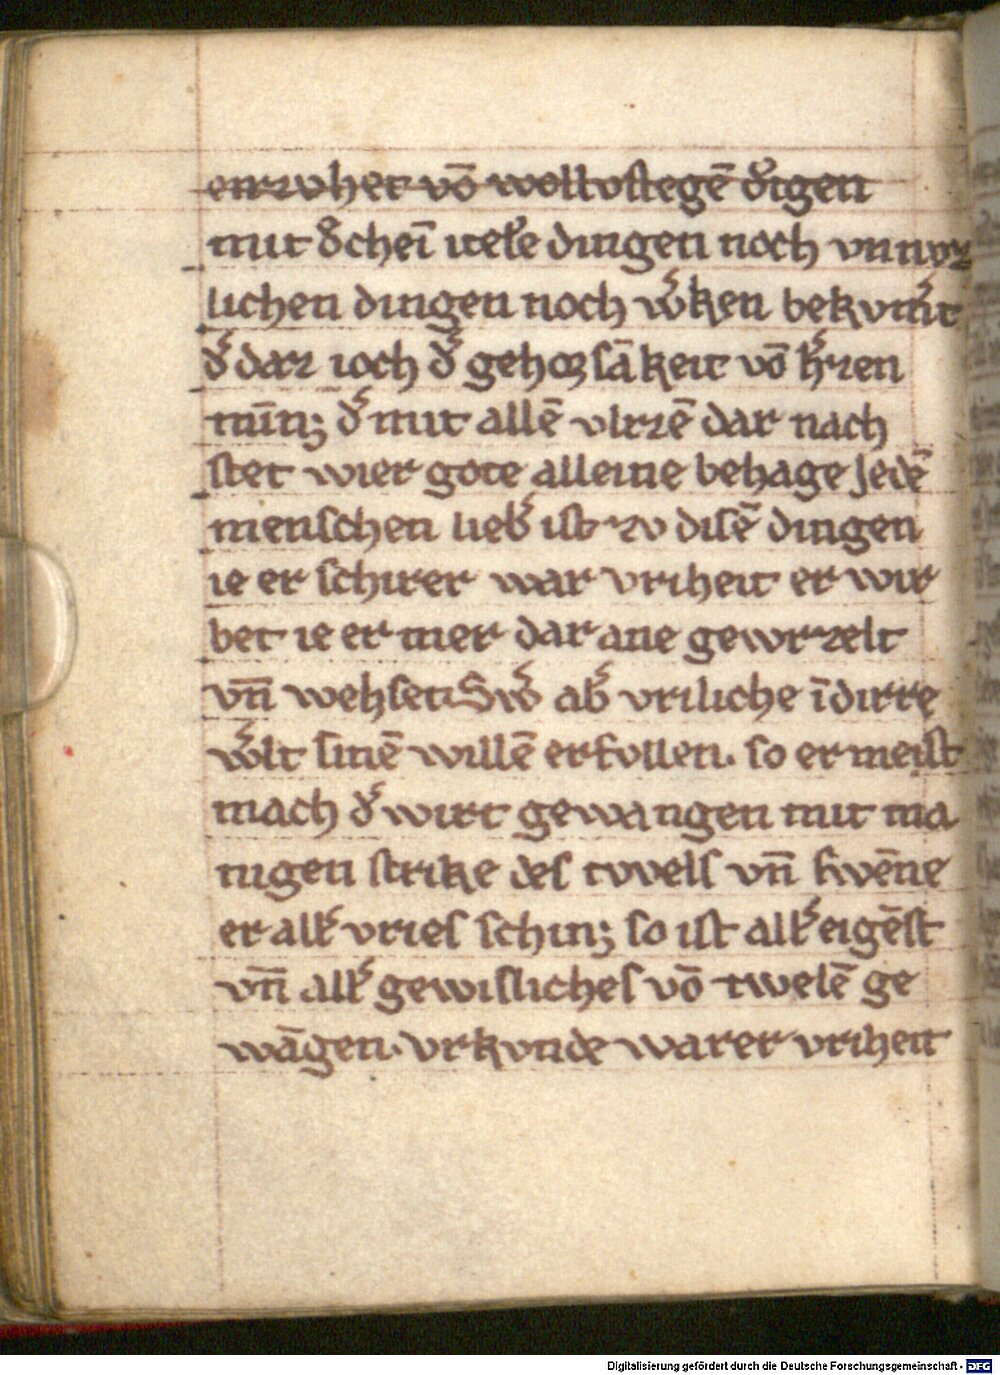 enzvhet võ wollvstegē dͤigen
mit dͤcheī itele dingen noch vnnvz
lichen dingen noch wͤken bekvmͤt
dͤ daz ioch dͤ gehorsākeit võ hͤzen
nīnꝫ dͤ mit allē vlizē dar nach
stet wier gote alleine behage Jedē
menschen liebͤ ist zv disē dingen
ie er schirer war vriheit er wir
bet ie er mer dar ane gewrzelt
vn̄ wehset Swͤ abͤ vriliche īdirre
wͤlt sinē willē erfvllen. so er meist
mach dͤ wirt gevvangen mit ma
nigen strike des tvvels vn̄ swēne
er allͤ vries schinꝫ so ist allͤ eigēst
vn̄ allͤ gewisliches võ twelē ge
wāgen. vrkvnde warer vriheit
Digitalisierung gefördert durch die Deutsche Forschungsgemeinschaft - DFG